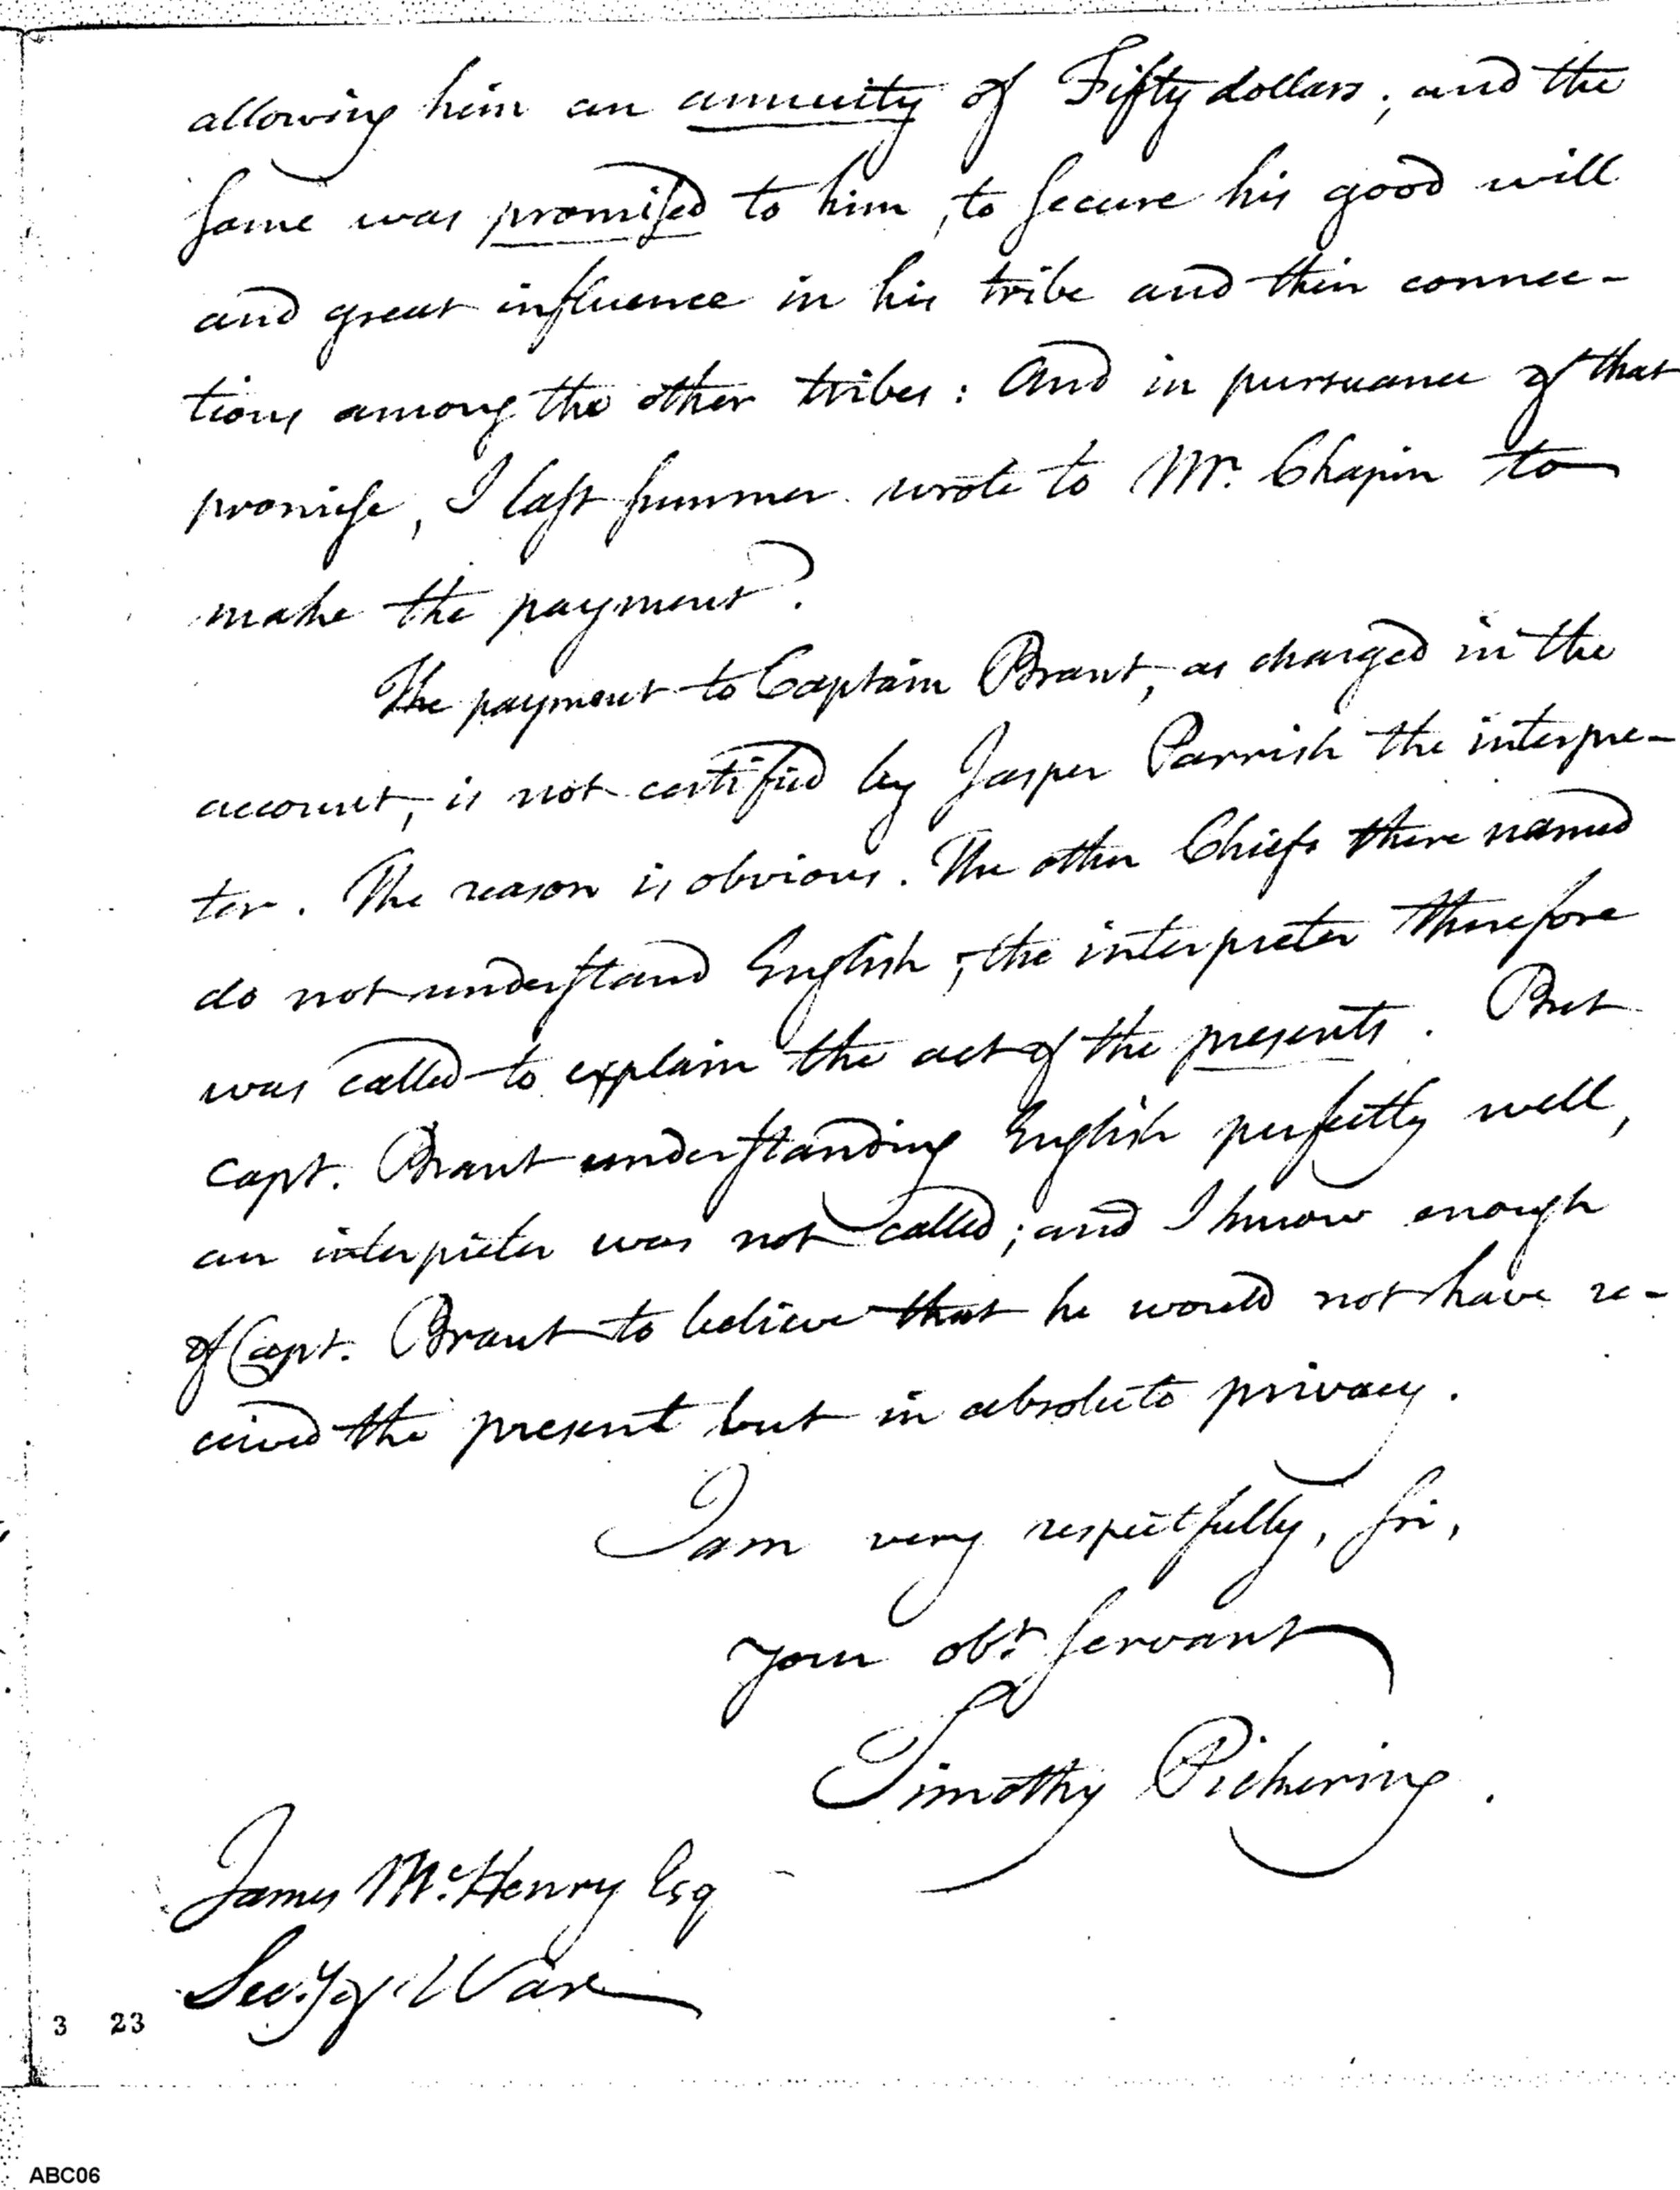 allowing him an annuity of Fifty dollars; and the
same was promised to him, to secure his good will
and great influence in his tribe and their connec-
tions among the other tribes: And in pursuance of that
promise, I last summer wrote to Mr. Chapin to
make the payment.
The payment to Captain Brant, as charged in the
account, is not certified by Jasper Parrish the interpre-
ter. The reason is obvious. The other Chiefs there named
do not understand English; the interpreter therefore
was called to explain the act of the presents. But
Capt. Brant understanding English perfectly well,
an interpreter was not called; and I know enough
of Capt. Brant to believe that he would not have re-
ceived the present but in absolute privacy.
I am very respectfully, sir,
your obt. servant
Timothy Pickering.
James McHenry Esq
Secy. of War
3 23
ABC06